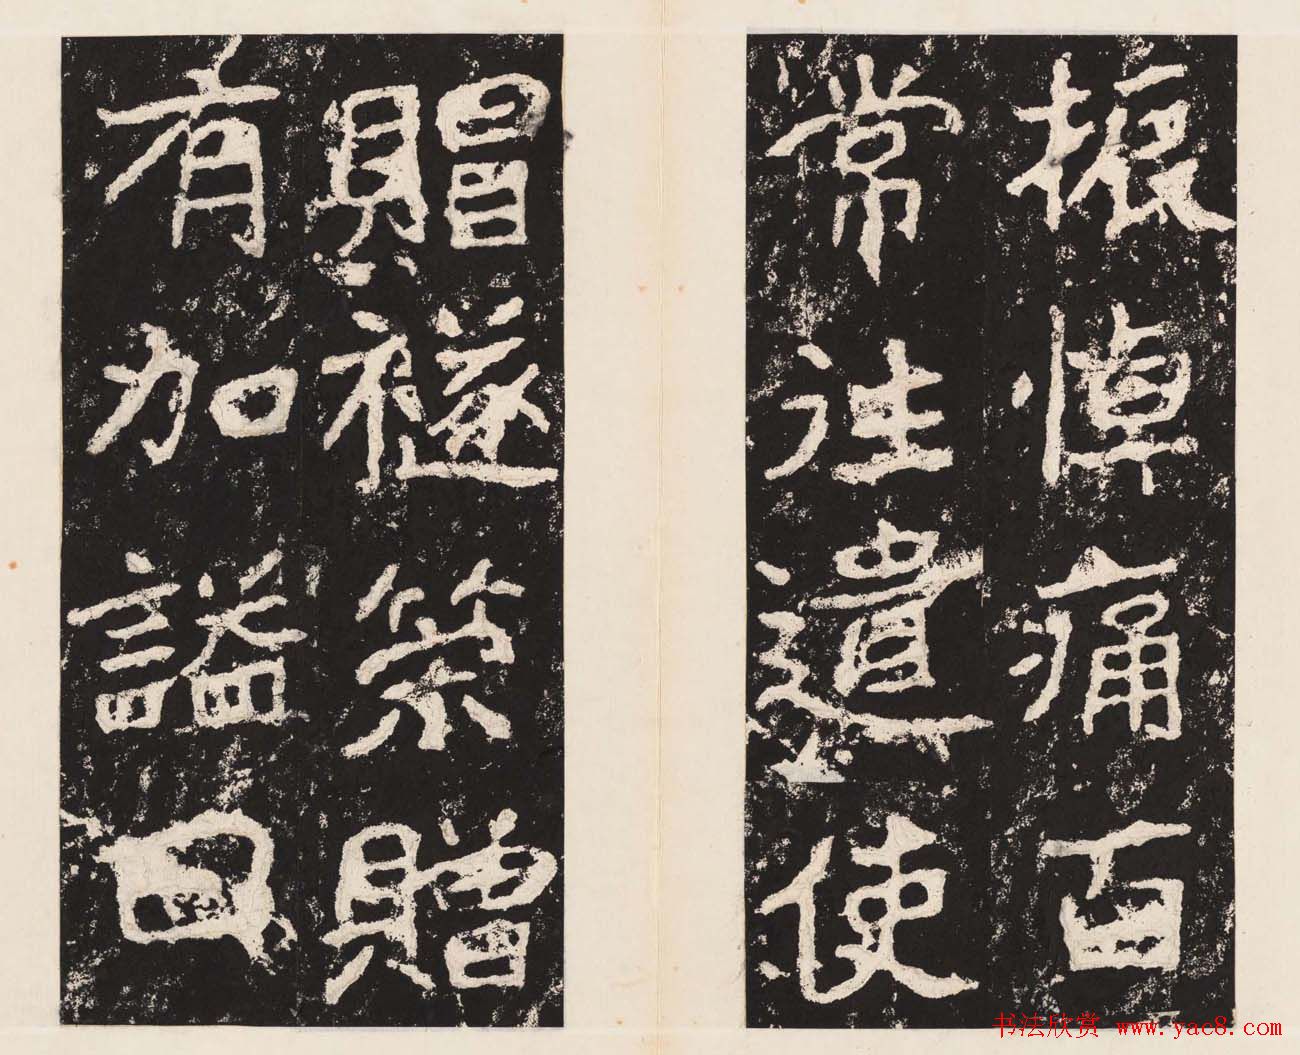 振悼痛百
常往遺使
賵襚策贈
有加謚曰
书法欣赏 www.yac8.com